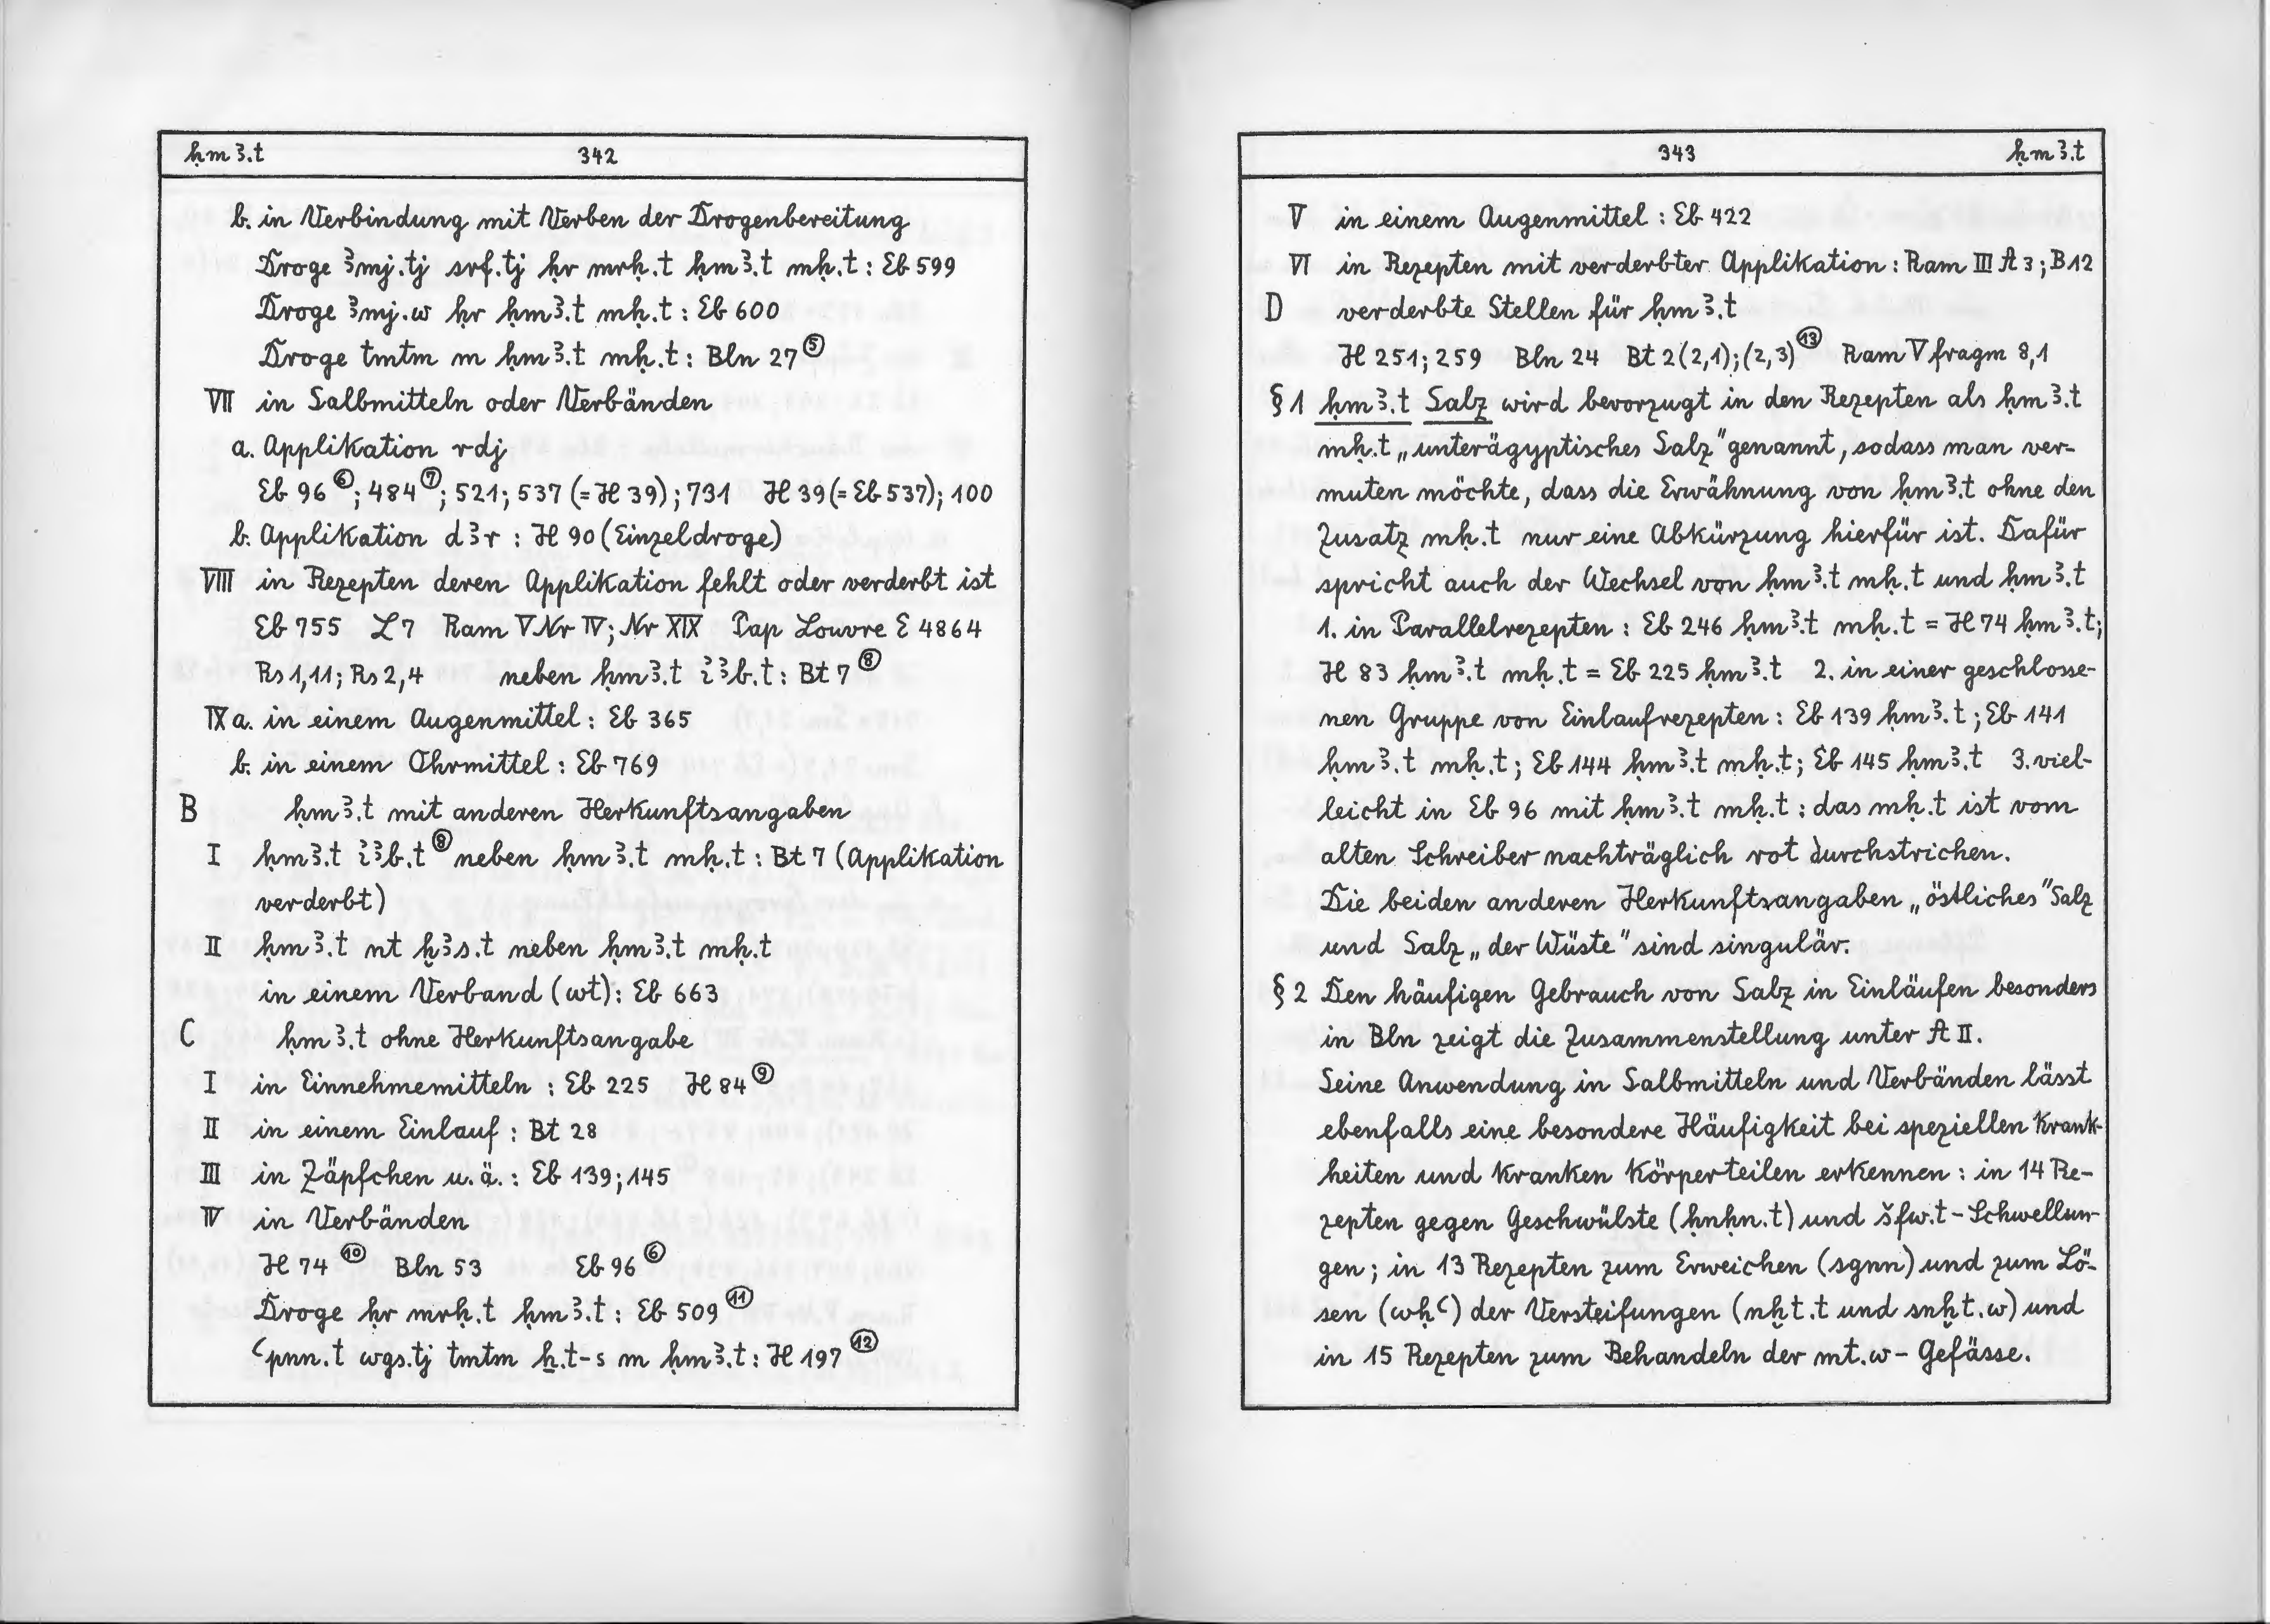 ḥmꜣ.t 342
b. in Verbindung mit Verben der Drogenbereitung
Droge ꜣmj.tj srf.tj ḥr mrḥ.t ḥmꜣ.t mḥ.t : Eb 599
Droge ꜣmj.w ḥr ḥmꜣ.t mḥ.t : Eb 600
Droge tmtm m ḥmꜣ.t mḥ.t : Bln 27 ⑤
VII in Salbmitteln oder Verbänden
a. Applikation rdj
Eb 96 ⑥; 484 ⑦; 521; 537 (= H 39); 731 H 39 (= Eb 537); 100
b. Applikation dꜣr : H 90 (Einzeldroge)
VIII in Rezepten deren Applikation fehlt oder verderbt ist
Eb 755 L 7 Ram V Nr IV; Nr XIX Pap Louvre E 4864
Rs 1,11; Rs 2,4 neben ḥmꜣ.t i҆ꜣb.t : Bt 7 ⑧
IX a. in einem Augenmittel : Eb 365
b. in einem Ohrmittel : Eb 769
B ḥmꜣ.t mit anderen Herkunftsangaben
I ḥmꜣ.t i҆ꜣb.t ⑧ neben ḥmꜣ.t mḥ.t : Bt 7 (Applikation
verderbt)
II ḥmꜣ.t nt ḫꜣs.t neben ḥmꜣ.t mḥ.t
in einem Verband (wt) : Eb 663
C ḥmꜣ.t ohne Herkunftsangabe
I in Einnehmemitteln : Eb 225 H 84 ⑨
II in einem Einlauf : Bt 28
III in Zäpfchen u. ä. : Eb 139; 145
IV in Verbänden
H 74 ⑩ Bln 53 Eb 96 ⑥
Droge ḥr mrḥ.t ḥmꜣ.t : Eb 509 ⑪
ꜥpnn.t wgs.tj tmtm ẖ.t-s m ḥmꜣ.t : H 197 ⑫
343 ḥmꜣ.t
V in einem Augenmittel : Eb 422
VI in Rezepten mit verderbter Applikation : Ram III A 3; B 12
D verderbte Stellen für ḥmꜣ.t
H 251; 259 Bln 24 Bt 2 (2,1); (2,3) ⑬ Ram V fragm 8,1
§ 1 ḥmꜣ.t Salz wird bevorzugt in den Rezepten als ḥmꜣ.t
mḥ.t „unterägyptisches Salz" genannt, sodass man ver-
muten möchte, dass die Erwähnung von ḥmꜣ.t ohne den
Zusatz mḥ.t nur eine Abkürzung hierfür ist. Dafür
spricht auch der Wechsel von ḥmꜣ.t mḥ.t und ḥmꜣ.t
1. in Parallelrezepten : Eb 246 ḥmꜣ.t mḥ.t = H 74 ḥmꜣ.t;
H 83 ḥmꜣ.t mḥ.t = Eb 225 ḥmꜣ.t 2. in einer geschlosse-
nen Gruppe von Einlaufrezepten : Eb 139 ḥmꜣ.t; Eb 141
ḥmꜣ.t mḥ.t; Eb 144 ḥmꜣ.t mḥ.t; Eb 145 ḥmꜣ.t 3. viel-
leicht in Eb 96 mit ḥmꜣ.t mḥ.t : das mḥ.t ist vom
alten Schreiber nachträglich rot durchstrichen.
Die beiden anderen Herkunftsangaben „östliches" Salz
und Salz „der Wüste" sind singulär.
§ 2 Den häufigen Gebrauch von Salz in Einläufen besonders
in Bln zeigt die Zusammenstellung unter A II.
Seine Anwendung in Salbmitteln und Verbänden lässt
ebenfalls eine besondere Häufigkeit bei speziellen Krank-
heiten und kranken Körperteilen erkennen : in 14 Re-
zepten gegen Geschwülste (ḥnḥn.t) und šfw.t-Schwellun-
gen; in 13 Rezepten zum Erweichen (sgnn) und zum Lö-
sen (wḥꜥ) der Versteifungen (nḫt.t und snḫt.w) und
in 15 Rezepten zum Behandeln der mt.w-Gefässe.